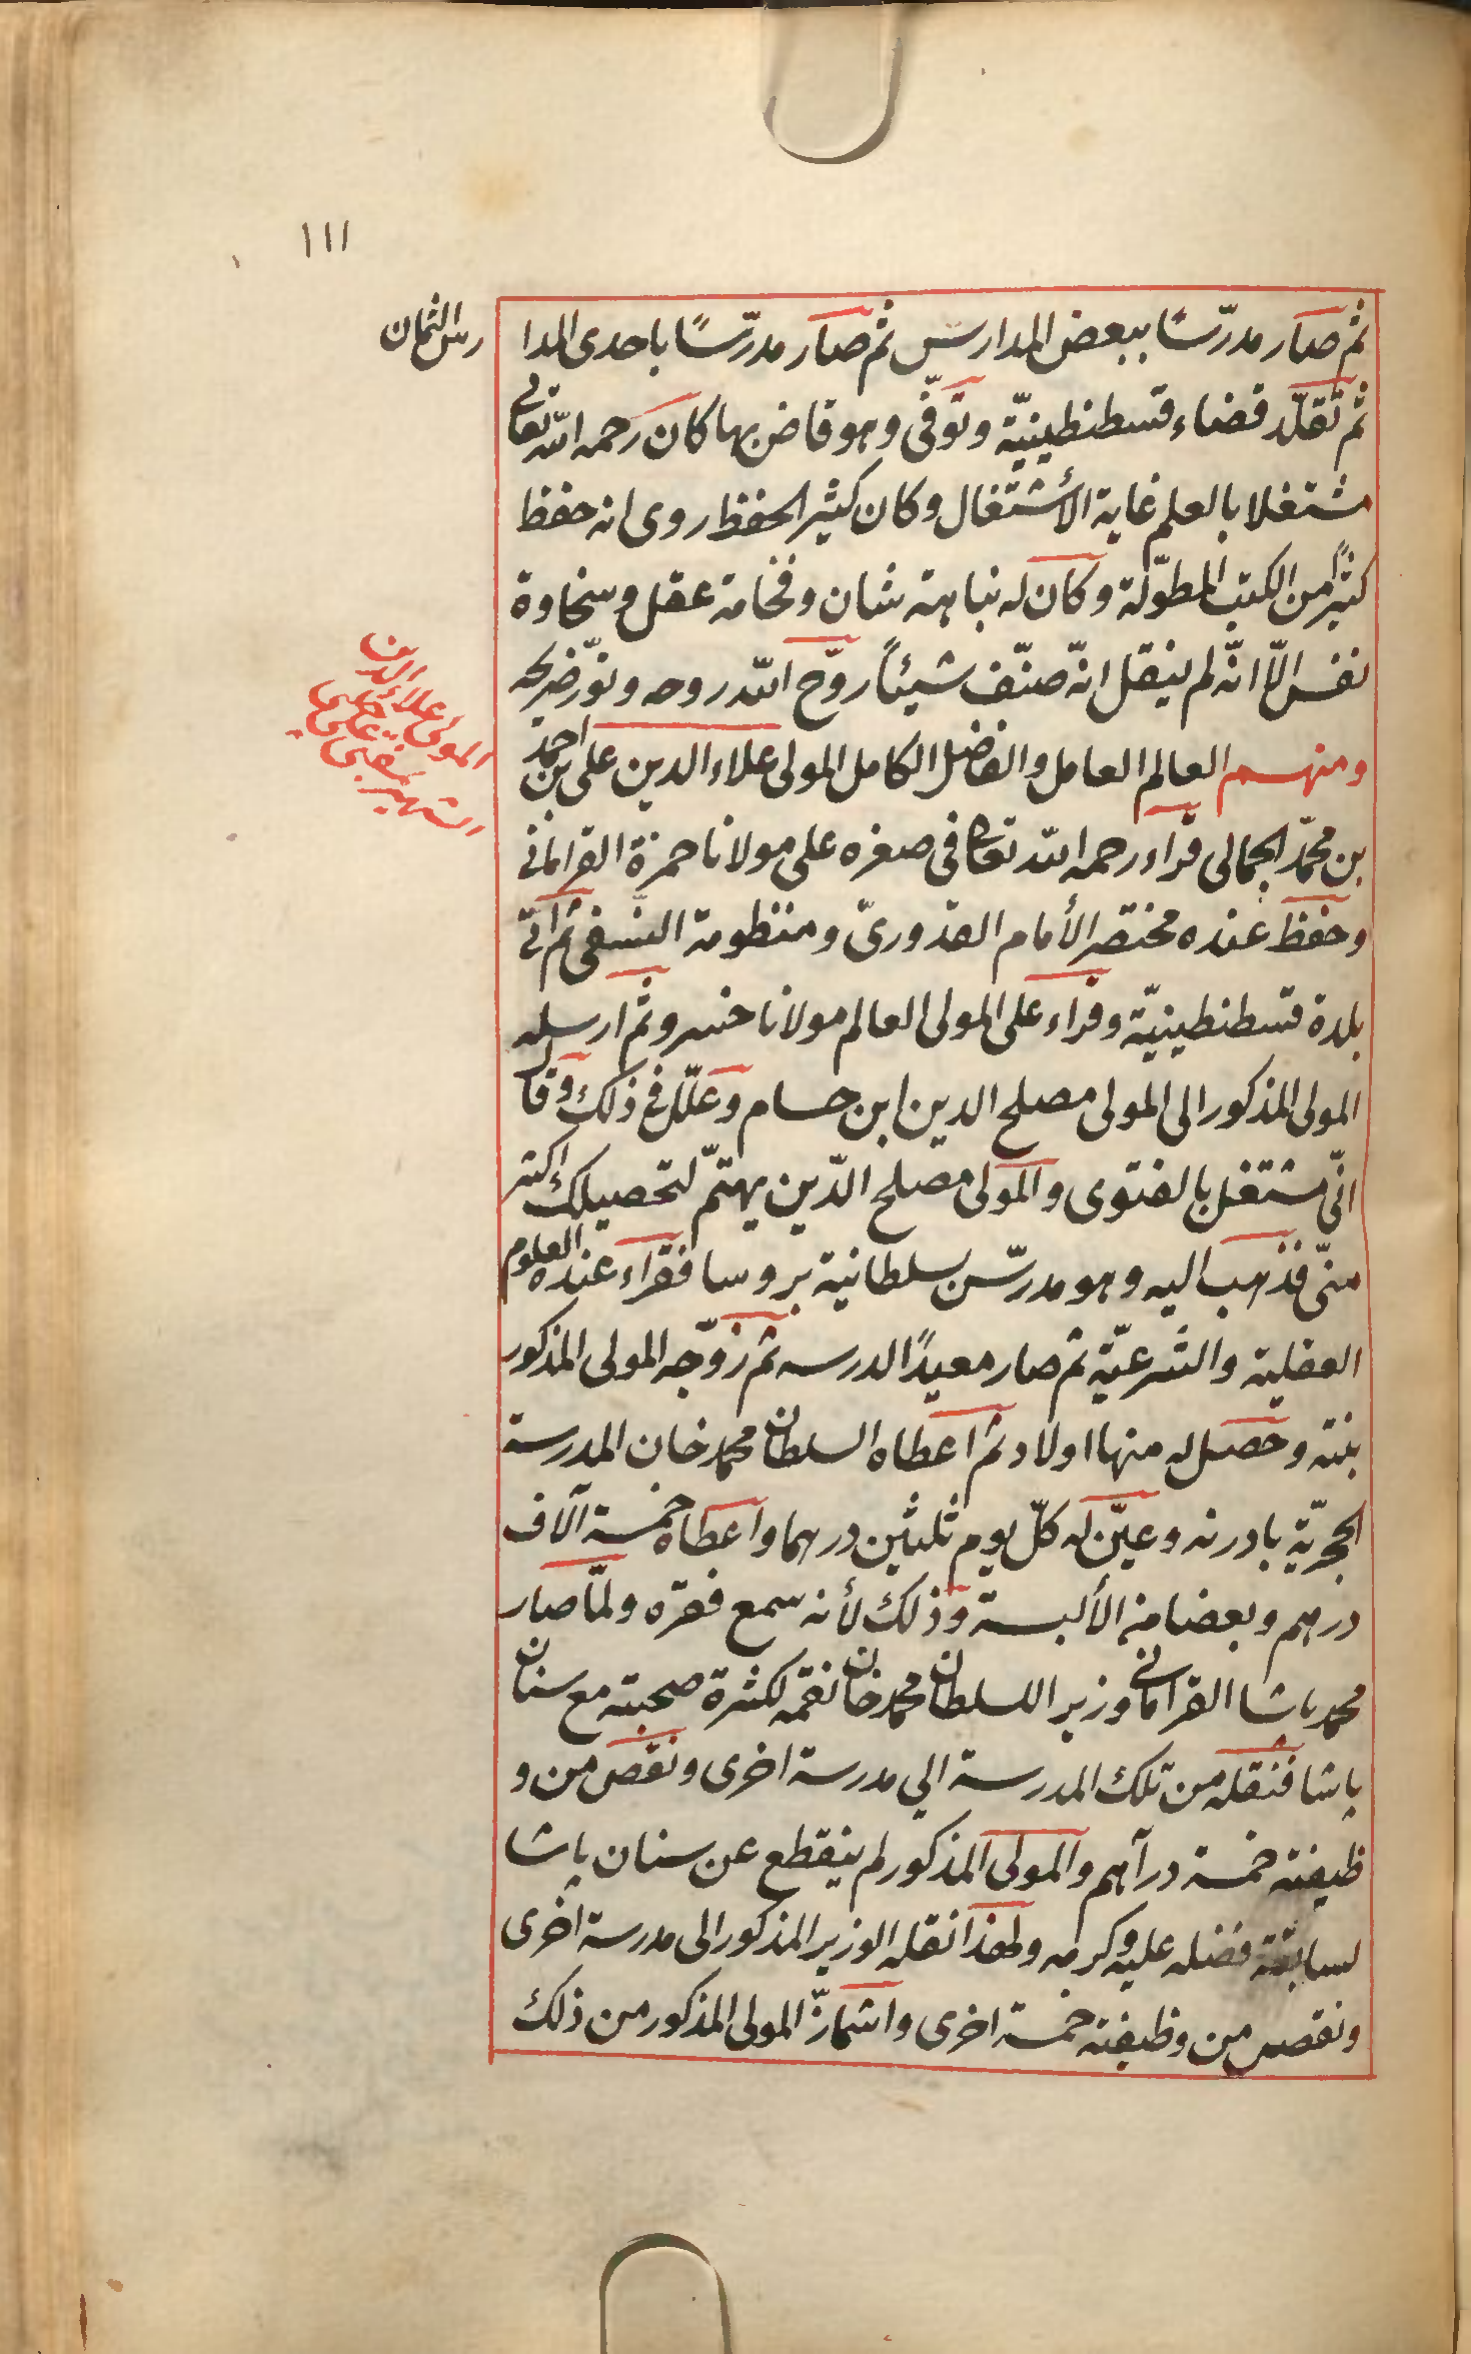 ١١١
ثم صار مدرّسًا ببعض المدارس ثم صار مدرّسًا باحدى المدا
رس الثمان
ثم تقلّد قضاء قسطنطينيّة وتوفّى وهو قاض بها كان رحمه الله تعالى
مشتغلا بالعلم غاية الأشتغال وكان كثير الحفظ روى انه حفظ
كثيرًا من الكتب المطوّلة وكان له نباهة شان وفخامة عقل وسخاوة
نفس الّا انّه لم ينقل انّه صنّف شيئاً روّح الله روحه ونوّر ضريحه
ومنهم العالم العامل والفاضل الكامل المولى علاء الدين على بن احمد
المولى علاء الدين
على
الشهير
بن محمّد الجمالى قراء رحمه الله تعالى فى صغره على مولانا حمزة القرامانى
وحفظ عنده مختصر الأمام القدورىّ ومنظومة النسفى ثم اتى
بلدة قسطنطينيّة وقراء على المولى العالم مولانا خسرو ثم ارسله
المولى المذكور الى المولى مصلح الدين ابن حسام وعلّل فى ذلك وقال
انّى مشتغل بالفتوى والمولى مصلح الدّين يهتمّ لتحصيلك اكثر
منّى فذهب اليه وهو مدرّس بسلطانية بروسا فقراء عنده العلوم
العقلية والشرعيّة ثم صار معيدًا لدرسه ثم زوّجه المولى المذكور
بنته وحصل له منها اولاد ثم اعطاه السلطان محمد خان المدرسة
الحجريّة بادرنه وعيّن له كلّ يوم ثلثين درهما واعطاه خمسة آلاف
درهم وبعضا من الألبسة وذلك لأنه سمع فقره ولمّا صار
محمد باشا القرامانى وزيرا للسلطان محمد خان نقمه لكثرة صحبته مع سنان
باشا فنقله من تلك المدرسة الى مدرسة اخرى ونقص من و
ظيفته خمسة دراهم والمولى المذكور لم ينقطع عن سنان باشا
لسابقة فضله عليه وكرمه ولهذا نقله الوزير المذكور الى مدرسة اخرى
ونقص من وظيفته خمسة اخرى واشمازّ المولى المذكور من ذلك